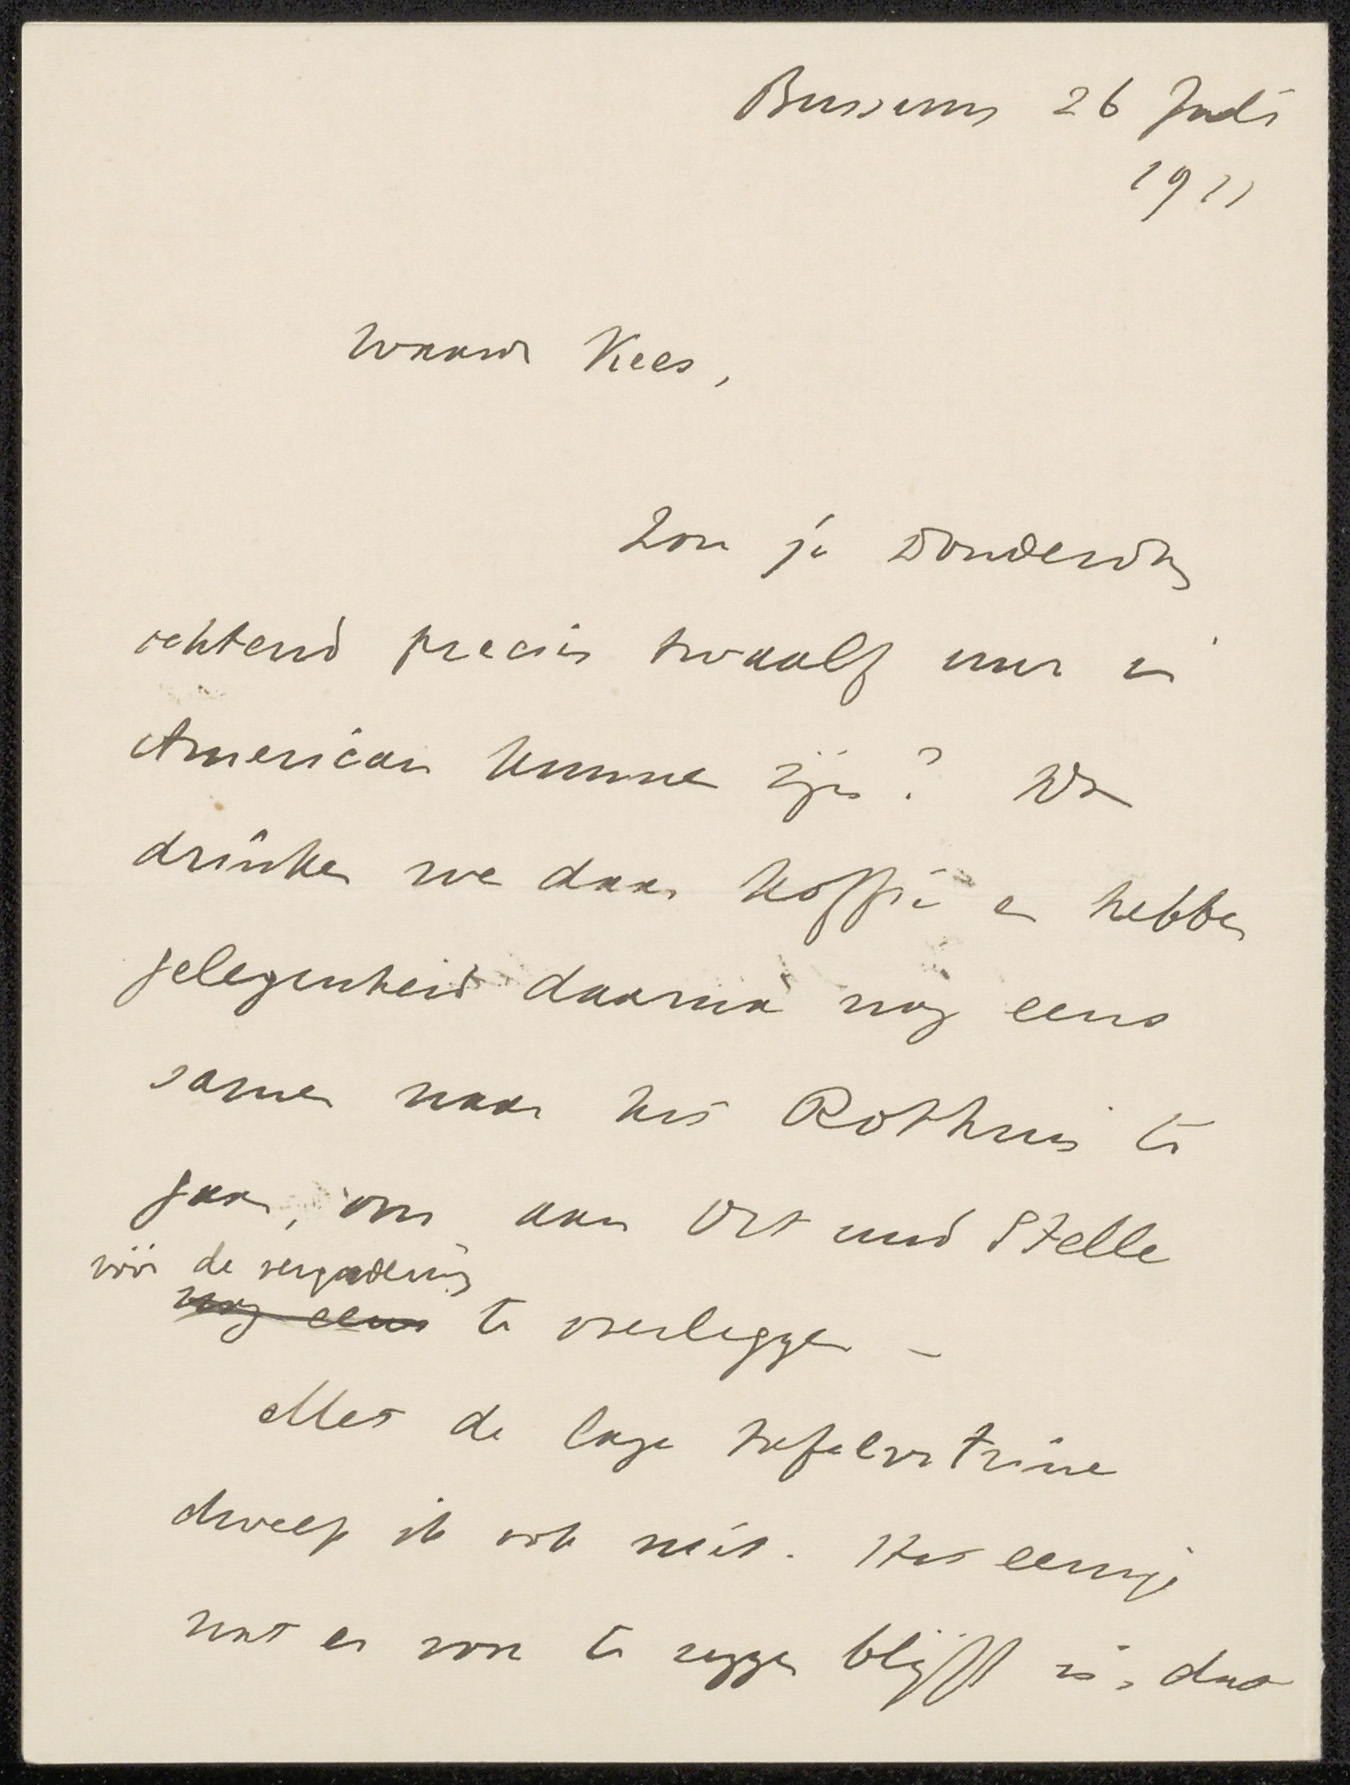 Bussum 26 Juli
1911
Waarde Kees,
Zou je Donderdag
ochtend precies twaalf uur in
American kunnen zijn? Dan
drinken we daar koffie en hebben
gelegenheid daarna nog eens
samen naar het Rokhuis te
gaan, om aan Ort und Stelle
vóór de vergadering
nog eens te overleggen –
Met de lage tafelvitrine
dweep ik ook niet. Het eenige
wat er voor te zeggen blijft is, dat